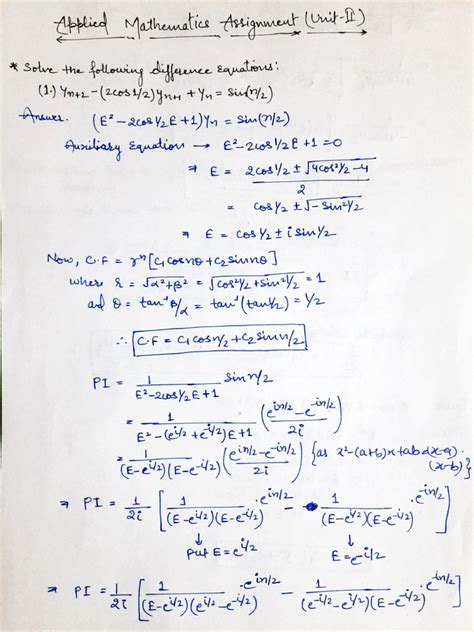 Applied Mathematics Assignment (Unit-II)
* Solve the following difference equations:
(1.) yn+2 - (2cos1/2)yn+1 + yn = sin(n/2)
Answer. (E² - 2cos1/2E + 1)yn = sin(n/2)
Auxiliary Equation → E² - 2cos1/2E + 1 = 0
⇒ E = 2cos1/2 ± √4cos²1/2 - 4 / 2
= cos1/2 ± √-sin²1/2
⇒ E = cos1/2 ± i sin1/2
Now, C.F = rⁿ[C1cosnθ + C2sinnθ]
where r = √α²+β² = √cos²1/2 + sin²1/2 = 1
and θ = tan⁻¹β/α = tan⁻¹(tan1/2) = 1/2
∴ C.F = C1cosn/2 + C2sinn/2
PI = 1/(E² - 2cos1/2E + 1) sinn/2
= 1/(E² - (e^i/2 + e^i/2)E + 1) (e^in/2 - e^-in/2 / 2i)
= 1/((E-e^i/2)(E-e^-i/2)) (e^in/2 - e^-in/2 / 2i) {as x²-(a+b)x+ab (x-a).(x-b)}
⇒ PI = 1/2i [1/((E-e^i/2)(E-e^-i/2)) .e^in/2 - 1/((E-e^i/2)(E-e^-i/2)) .e^-in/2]
↓ ↓
Put E = e^i/2 E = e^-i/2
⇒ PI = 1/2i [1/((E-e^i/2)(e^i/2-e^-i/2)) .e^in/2 - 1/((e^-i/2-e^i/2)(E-e^-i/2)) .e^-in/2]